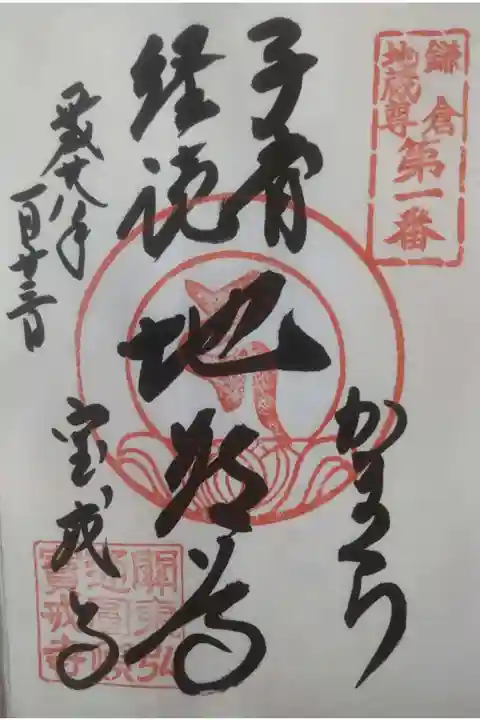 鎌倉
地蔵尊
第一番
かまくら
子育
経読
地蔵尊
平成十八年
一月十三日
宝戒寺
關東弘
通圓頓
寶戒寺